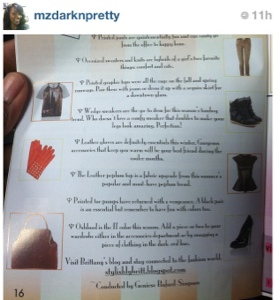 mzdarknpretty
11h
Printed pants are
from the office to happy hour.
Oversized sweaters and knits are hybrids of a girl's two favorite
things: comfort and cute.
Printed graphic tops were all the rage on the fall and spring
runways. Pair these with jeans or dress it up with a sequin skirt for
a downtown glam.
Wedge sneakers are the go-to shoe for this season's trendy
trend. Who doesn't love a comfy sneaker that doubles to make your
legs look amazing. Perfection!
Leather gloves are definitely essentials this winter. Gorgeous
accessories that keep you warm will be your best friend during the
winter months.
The Leather peplum top is a fabric upgrade from this season's
popular and must-have peplum trend.
Pointed toe pumps have returned with a vengeance. A black pair
is an essential but remember to have fun with colors too.
Oxblood is the IT color this season. Add a piece or two to your
wardrobe either in the accessories department or by snagging a
piece of clothing in the dark red hue.
Visit Brittany's blog and stay connected to the fashion world.
Conducted by
16